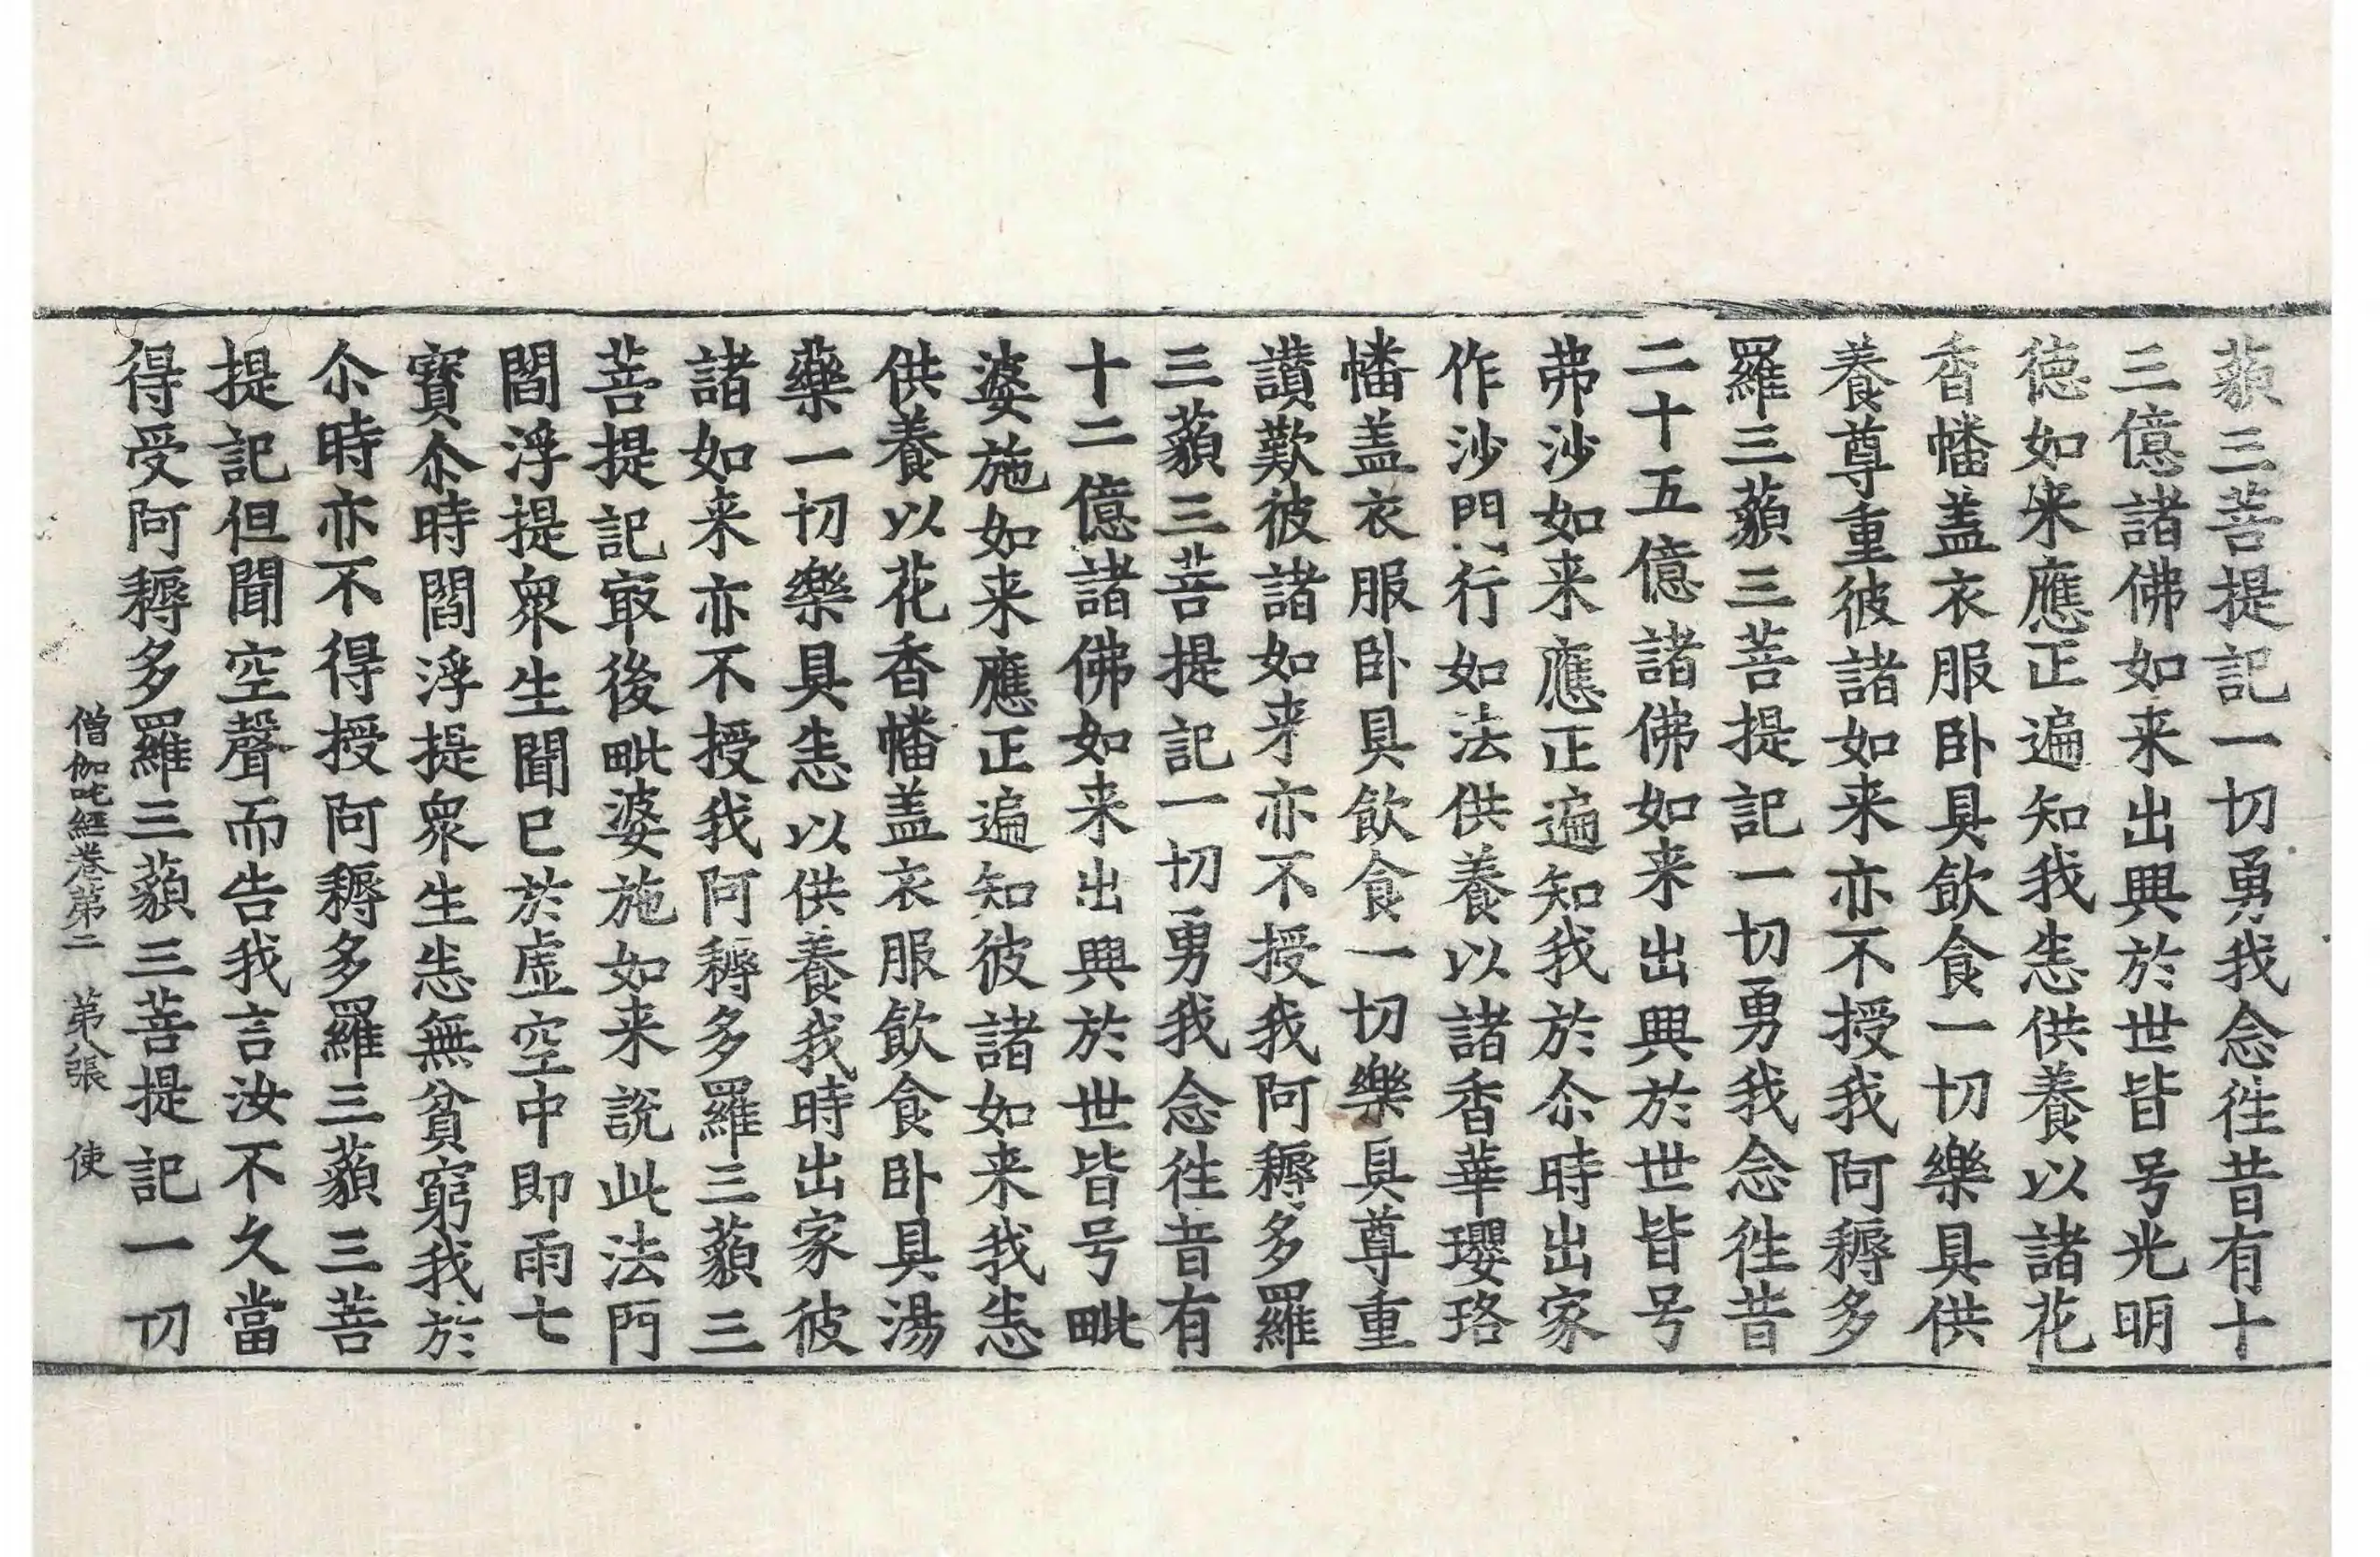 藐三菩提記一切勇我念徃昔有十
三億諸佛如来出興於世皆号光明
德如来應正遍知我悉供養以諸花
香幡盖衣服卧具飲食一切樂具供
養尊重彼諸如来亦不授我阿耨多
羅三藐三菩提記一切勇我念徃昔
二十五億諸佛如来出興於世皆号
弗沙如来應正遍知我於尒時出家
作沙門行如法供養以諸香華瓔珞
幡盖衣服卧具飲食一切樂具尊重
讃歎彼諸如来亦不授我阿耨多羅
三藐三菩提記一切勇我念徃昔有
十二億諸佛如来出興於世皆号毗
婆施如来應正遍知彼諸如来我悉
供養以花香幡盖衣服飲食卧具湯
藥一切樂具悉以供養我時出家彼
諸如来亦不授我阿耨多羅三藐三
菩提記㝡後毗婆施如来說此法門
閻浮提衆生聞已於虛空中即雨七
寳尒時閻浮提衆生悉無貧窮我於
尒時亦不得授阿耨多羅三藐三菩
提記但聞空聲而告我言汝不久當
得受阿耨多羅三藐三菩提記一切
僧伽吒經卷第二　第八張　使